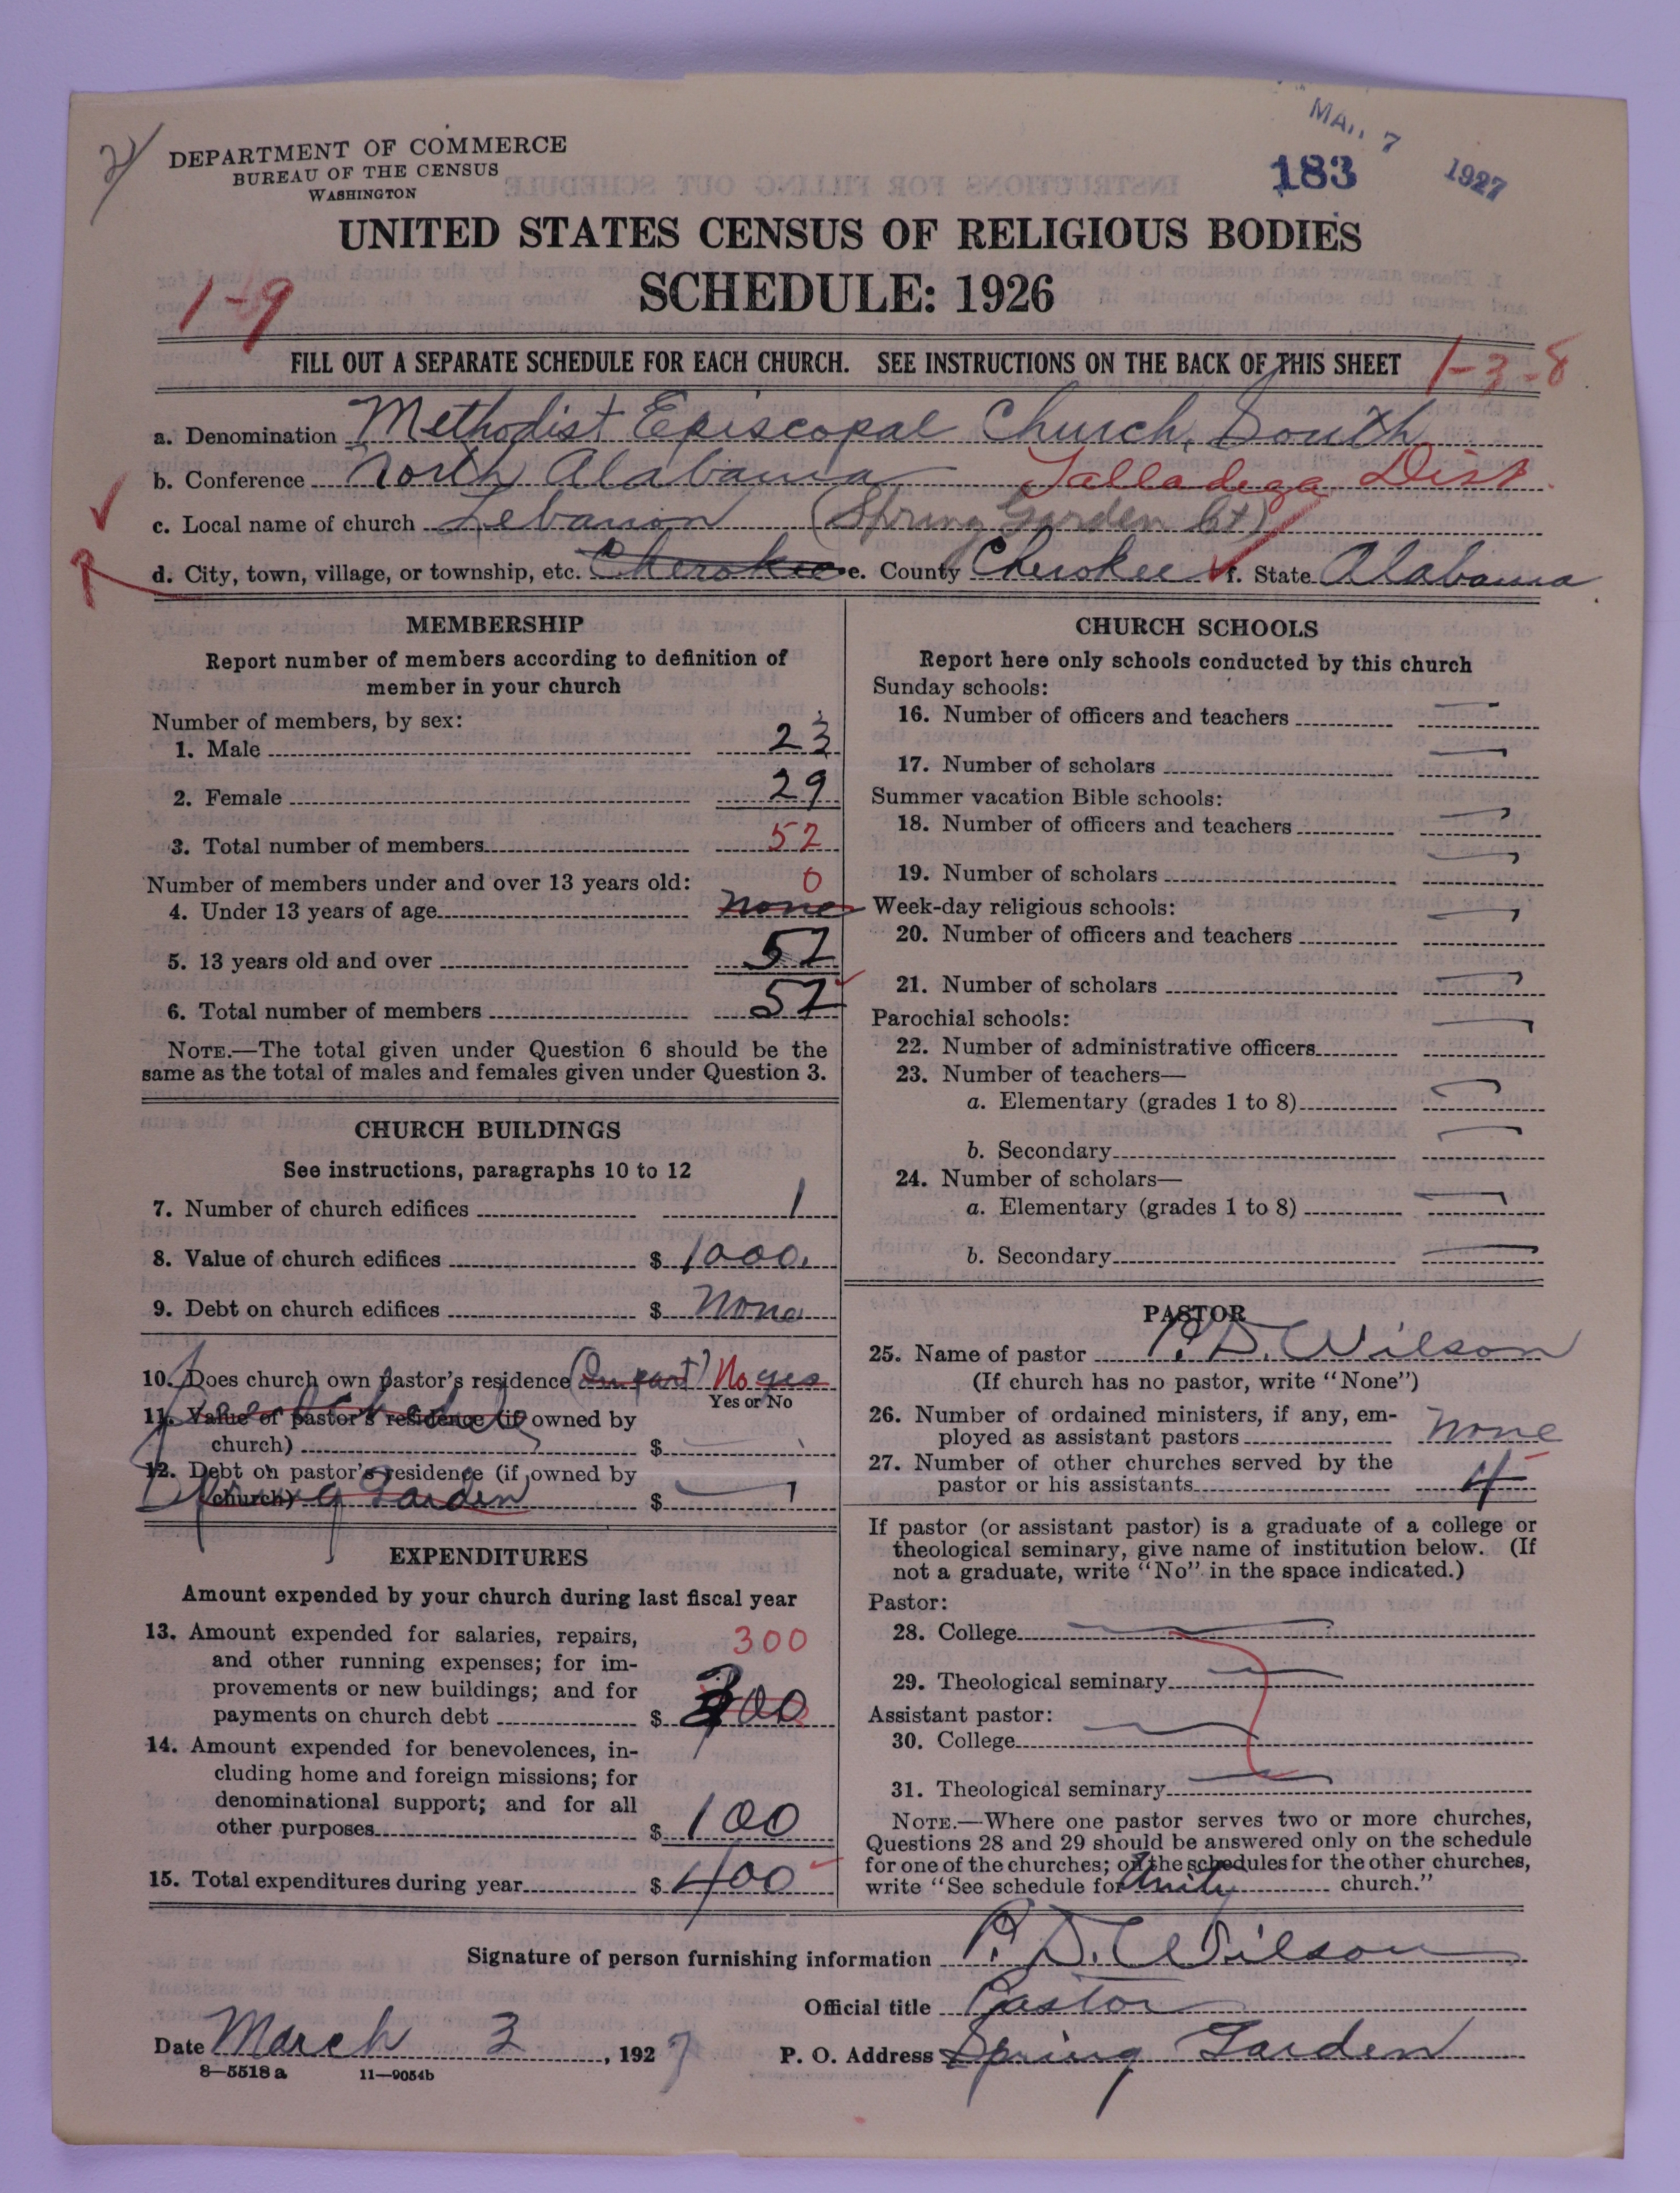 MAR 7 1927
183
DEPARTMENT OF COMMERCE
BUREAU OF THE CENSUS
WASHINGTON
UNITED STATES CENSUS OF RELIGIOUS BODIES
SCHEDULE: 1926
1-9
FILL OUT A SEPARATE SCHEDULE FOR EACH CHURCH. SEE INSTRUCTIONS ON THE BACK OF THIS SHEET
1-3-8
a. Denomination Methodist Episcopal Church, South
b. Conference North Alabama Talladega Dist.
c. Local name of church Lebanon (Spring Garden Ct)
d. City, town, village, or township, etc. Cherokee e. County Cherokee f. State Alabama
MEMBERSHIP
Report number of members according to definition of
member in your church
Number of members, by sex:
1. Male 23
2. Female 29
3. Total number of members 52
Number of members under and over 13 years old: 0
4. Under 13 years of age none
5. 13 years old and over 52
6. Total number of members 52
NOTE.—The total given under Question 6 should be the
same as the total of males and females given under Question 3.
CHURCH BUILDINGS
See instructions, paragraphs 10 to 12
7. Number of church edifices 1
8. Value of church edifices $ 1000.
9. Debt on church edifices $ None
10. Does church own pastor's residence (In part) No yes
Yes or No
11. Value of pastor's residence (if owned by
church) $
12. Debt on pastor's residence (if owned by
church) $
Spring Garden
EXPENDITURES
Amount expended by your church during last fiscal year
13. Amount expended for salaries, repairs, 300
and other running expenses; for im-
provements or new buildings; and for
payments on church debt $ 300
14. Amount expended for benevolences, in-
cluding home and foreign missions; for
denominational support; and for all
other purposes $ 100
15. Total expenditures during year $ 400
CHURCH SCHOOLS
Report here only schools conducted by this church
Sunday schools:
16. Number of officers and teachers
17. Number of scholars
Summer vacation Bible schools:
18. Number of officers and teachers
19. Number of scholars
Week-day religious schools:
20. Number of officers and teachers
21. Number of scholars
Parochial schools:
22. Number of administrative officers
23. Number of teachers—
a. Elementary (grades 1 to 8)
b. Secondary
24. Number of scholars—
a. Elementary (grades 1 to 8)
b. Secondary
PASTOR
25. Name of pastor P. D. Wilson
(If church has no pastor, write "None")
26. Number of ordained ministers, if any, em-
ployed as assistant pastors none
27. Number of other churches served by the
pastor or his assistants 4
If pastor (or assistant pastor) is a graduate of a college or
theological seminary, give name of institution below. (If
not a graduate, write "No" in the space indicated.)
Pastor:
28. College
29. Theological seminary
Assistant pastor:
30. College
31. Theological seminary
NOTE.—Where one pastor serves two or more churches,
Questions 28 and 29 should be answered only on the schedule
for one of the churches; on the schedules for the other churches,
write "See schedule for Unity church."
Signature of person furnishing information P. D. Wilson
Official title Pastor
Date March 3, 1927 P. O. Address Spring Garden
8—5518 a 11—9054b